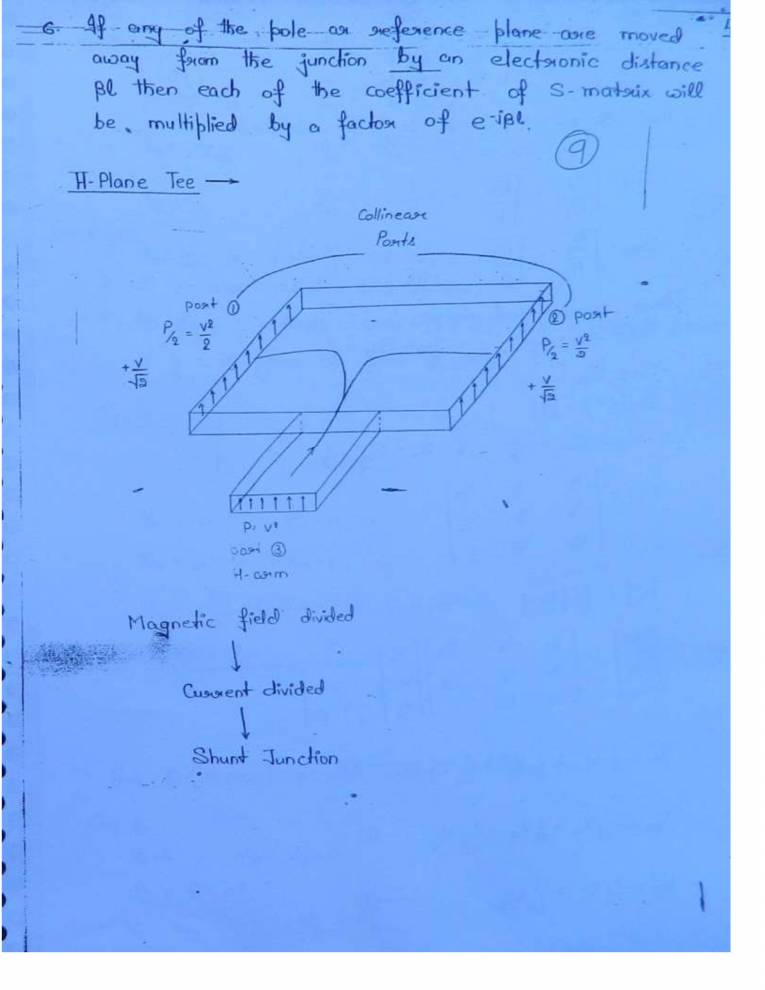 6. If any of the pole or reference plane are moved
away from the junction by an electronic distance
βl then each of the coefficient of S-matrix will
be multiplied by a factor of e-jβl.
9
H-Plane Tee →
Collinear
Ports
port ①
P/2 = V²/2
+ V/√2
② port
P/2 = V²/2
+ V/√2
P, V²
port ③
H-arm
Magnetic field divided
↓
Current divided
↓
Shunt Junction